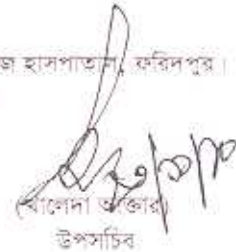 জ হাসপাতাল, ফরিদপুর।
(খালেদা আক্তার)
উপসচিব